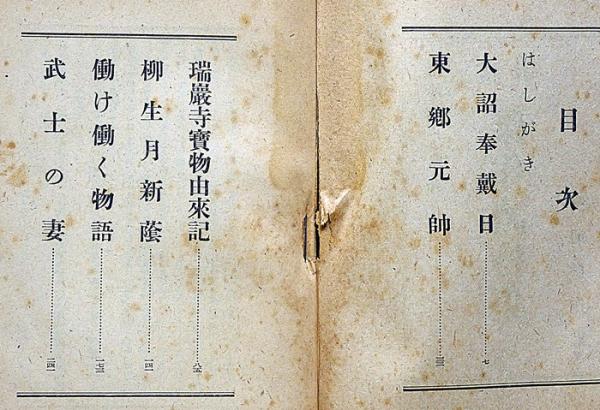 目次
はしがき
大詔奉戴日…………七
東郷元帥…………
瑞巖寺寶物由來記…………
柳生月新蔭…………
働け働く物語…………
武士の妻…………